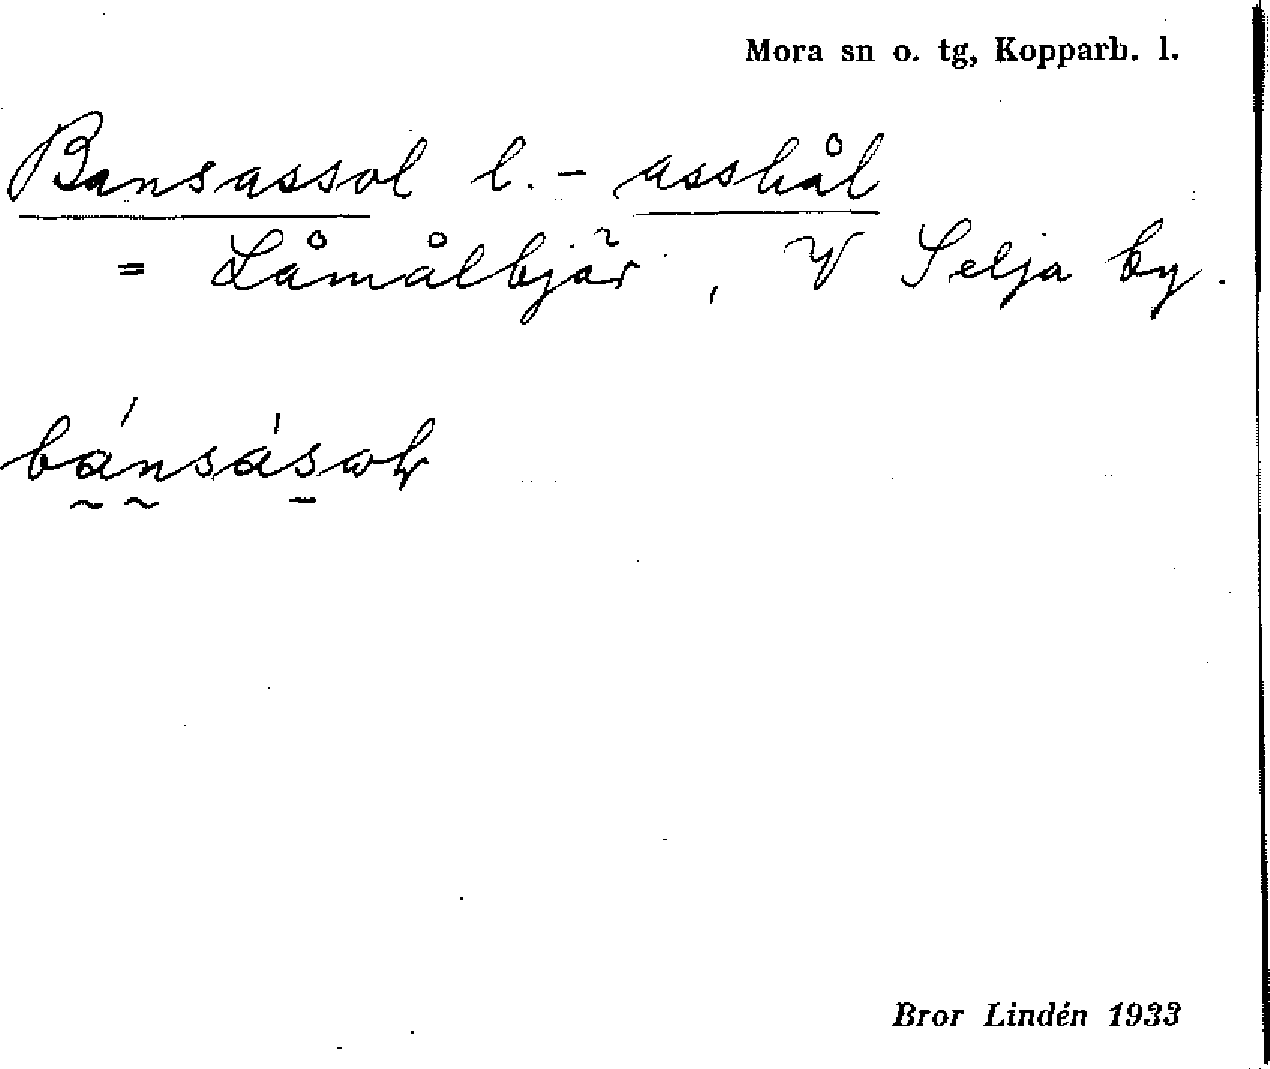 Mora sn o. tg, Kopparb. l.
Bansassol l. - asshål
= Låmålbjär, V Selja by.
bánsásoł
Bror Lindén 1933